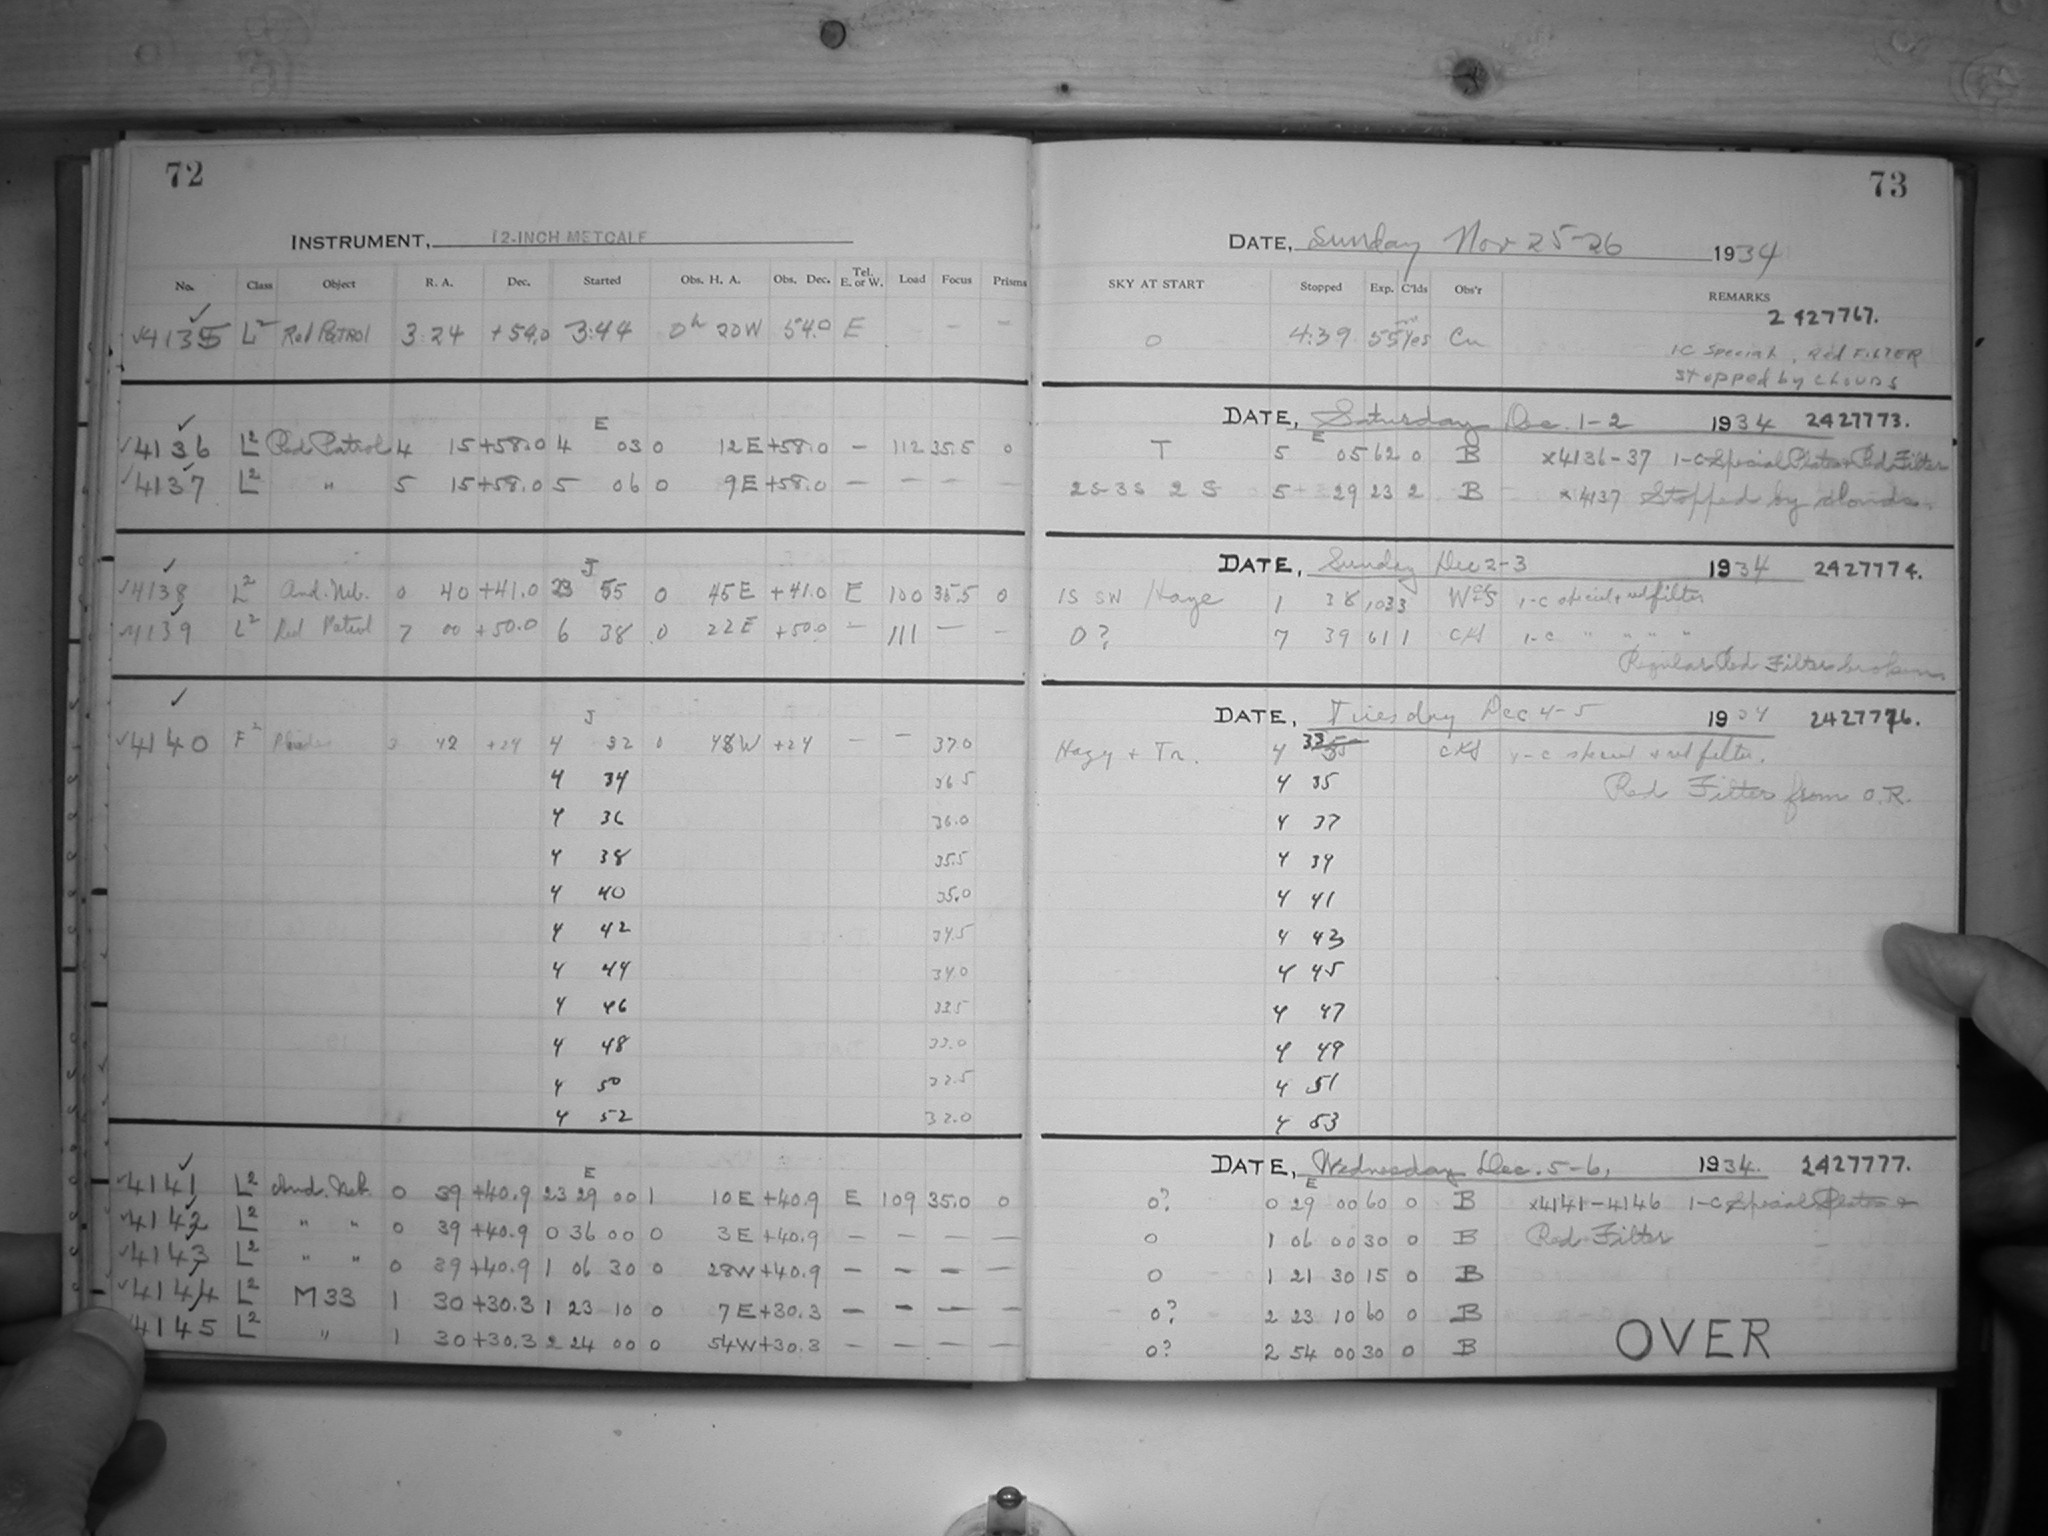 72
73
INSTRUMENT, 12-INCH METCALF
DATE, Sunday Nov 25-26 1934
No. Class Object R. A. Dec. Started Obs. H. A. Obs. Dec. Tel. E. or W. Load Focus Prisms SKY AT START Stopped Exp. C'lds Obs'r REMARKS
2427767.
4135 L2 Red Patrol 3 24 +54.0 3:44 0h 20W 54.0 E - - - 0 4:39 55m Yes Cn
1C Special, Red FILTER
Stopped by Clouds
DATE, Saturday Dec. 1-2 1934 2427773.
E E
4136 L2 Red Patrol 4 15 +58.0 4 03 0 12E +58.0 - 112 35.5 0 T 5 05 62 0 B x4136-37 1-C Special Plates Red Filter
4137 L2 " 5 15 +58.0 5 06 0 9E +58.0 - - - - 2S 3S 2S 5 29 23 2 B x4137 Stopped by clouds.
DATE, Sunday Dec 2-3 1934 2427774.
J
4138 L2 And. Neb. 0 40 +41.0 23 55 0 45E +41.0 E 100 35.5 0 1S SW Haze 1 38 103 3 1-c special + red filter
4139 L2 Red Patrol 7 00 +50.0 6 38 0 22E +50.0 - 111 - - 0? 7 39 61 1 CKS 1-c " " " "
Regular Red Filter broken
DATE, Tuesday Dec 4-5 1934 2427776.
J
4140 F2 3 42 +24 4 32 0 48W +24 - - 37.0 Hazy + Tr. 4 33 CKS 1-c special + red filter.
4 34 36.5 4 35 Red Filter from O.R.
4 36 36.0 4 37
4 38 35.5 4 39
4 40 35.0 4 41
4 42 34.5 4 43
4 44 34.0 4 45
4 46 33.5 4 47
4 48 33.0 4 49
4 50 32.5 4 51
4 52 32.0 4 53
DATE, Wednesday Dec. 5-6, 1934. 2427777.
E E
4141 L2 And. Neb. 0 39 +40.9 23 29 00 1 10E +40.9 E 109 35.0 0 0? 0 29 00 60 0 B x4141-4146 1-C Special Plates +
4142 L2 " " 0 39 +40.9 0 36 00 0 3E +40.9 - - - - 0 1 06 00 30 0 B Red Filter
4143 L2 " " 0 39 +40.9 1 06 30 0 28W +40.9 - - - - 0 1 21 30 15 0 B
4144 L2 M33 1 30 +30.3 1 23 10 0 7E +30.3 - - - - 0? 2 23 10 60 0 B
4145 L2 " 1 30 +30.3 2 24 00 0 54W +30.3 - - - - 0? 2 54 00 30 0 B
OVER